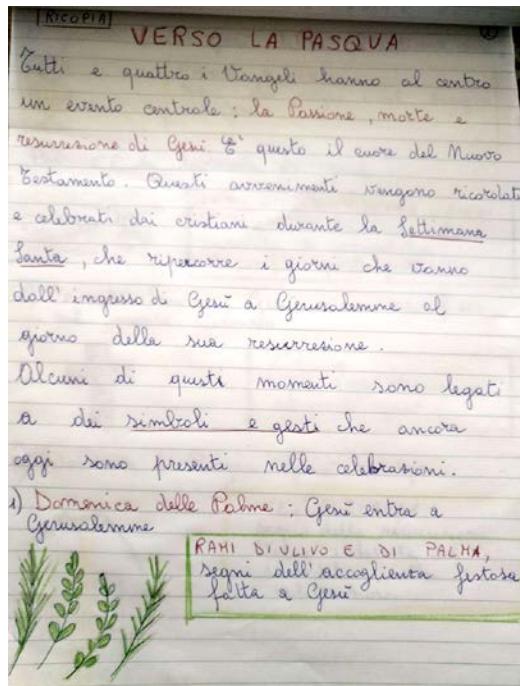 RICOPIA
VERSO LA PASQUA
Tutti e quattro i Vangeli hanno al centro
un evento centrale : la Passione, morte e
resurrezione di Gesù. E' questo il cuore del Nuovo
Testamento. Questi avvenimenti vengono ricordati
e celebrati dai cristiani durante la Settimana
Santa, che ripercorre i giorni che vanno
dall'ingresso di Gesù a Gerusalemme al
giorno della sua resurrezione.
Alcuni di questi momenti sono legati
a dei simboli e gesti che ancora
oggi sono presenti nelle celebrazioni.
1) Domenica delle Palme : Gesù entra a
Gerusalemme
RAMI DI ULIVO E DI PALMA,
segni dell'accoglienza festosa
fatta a Gesù